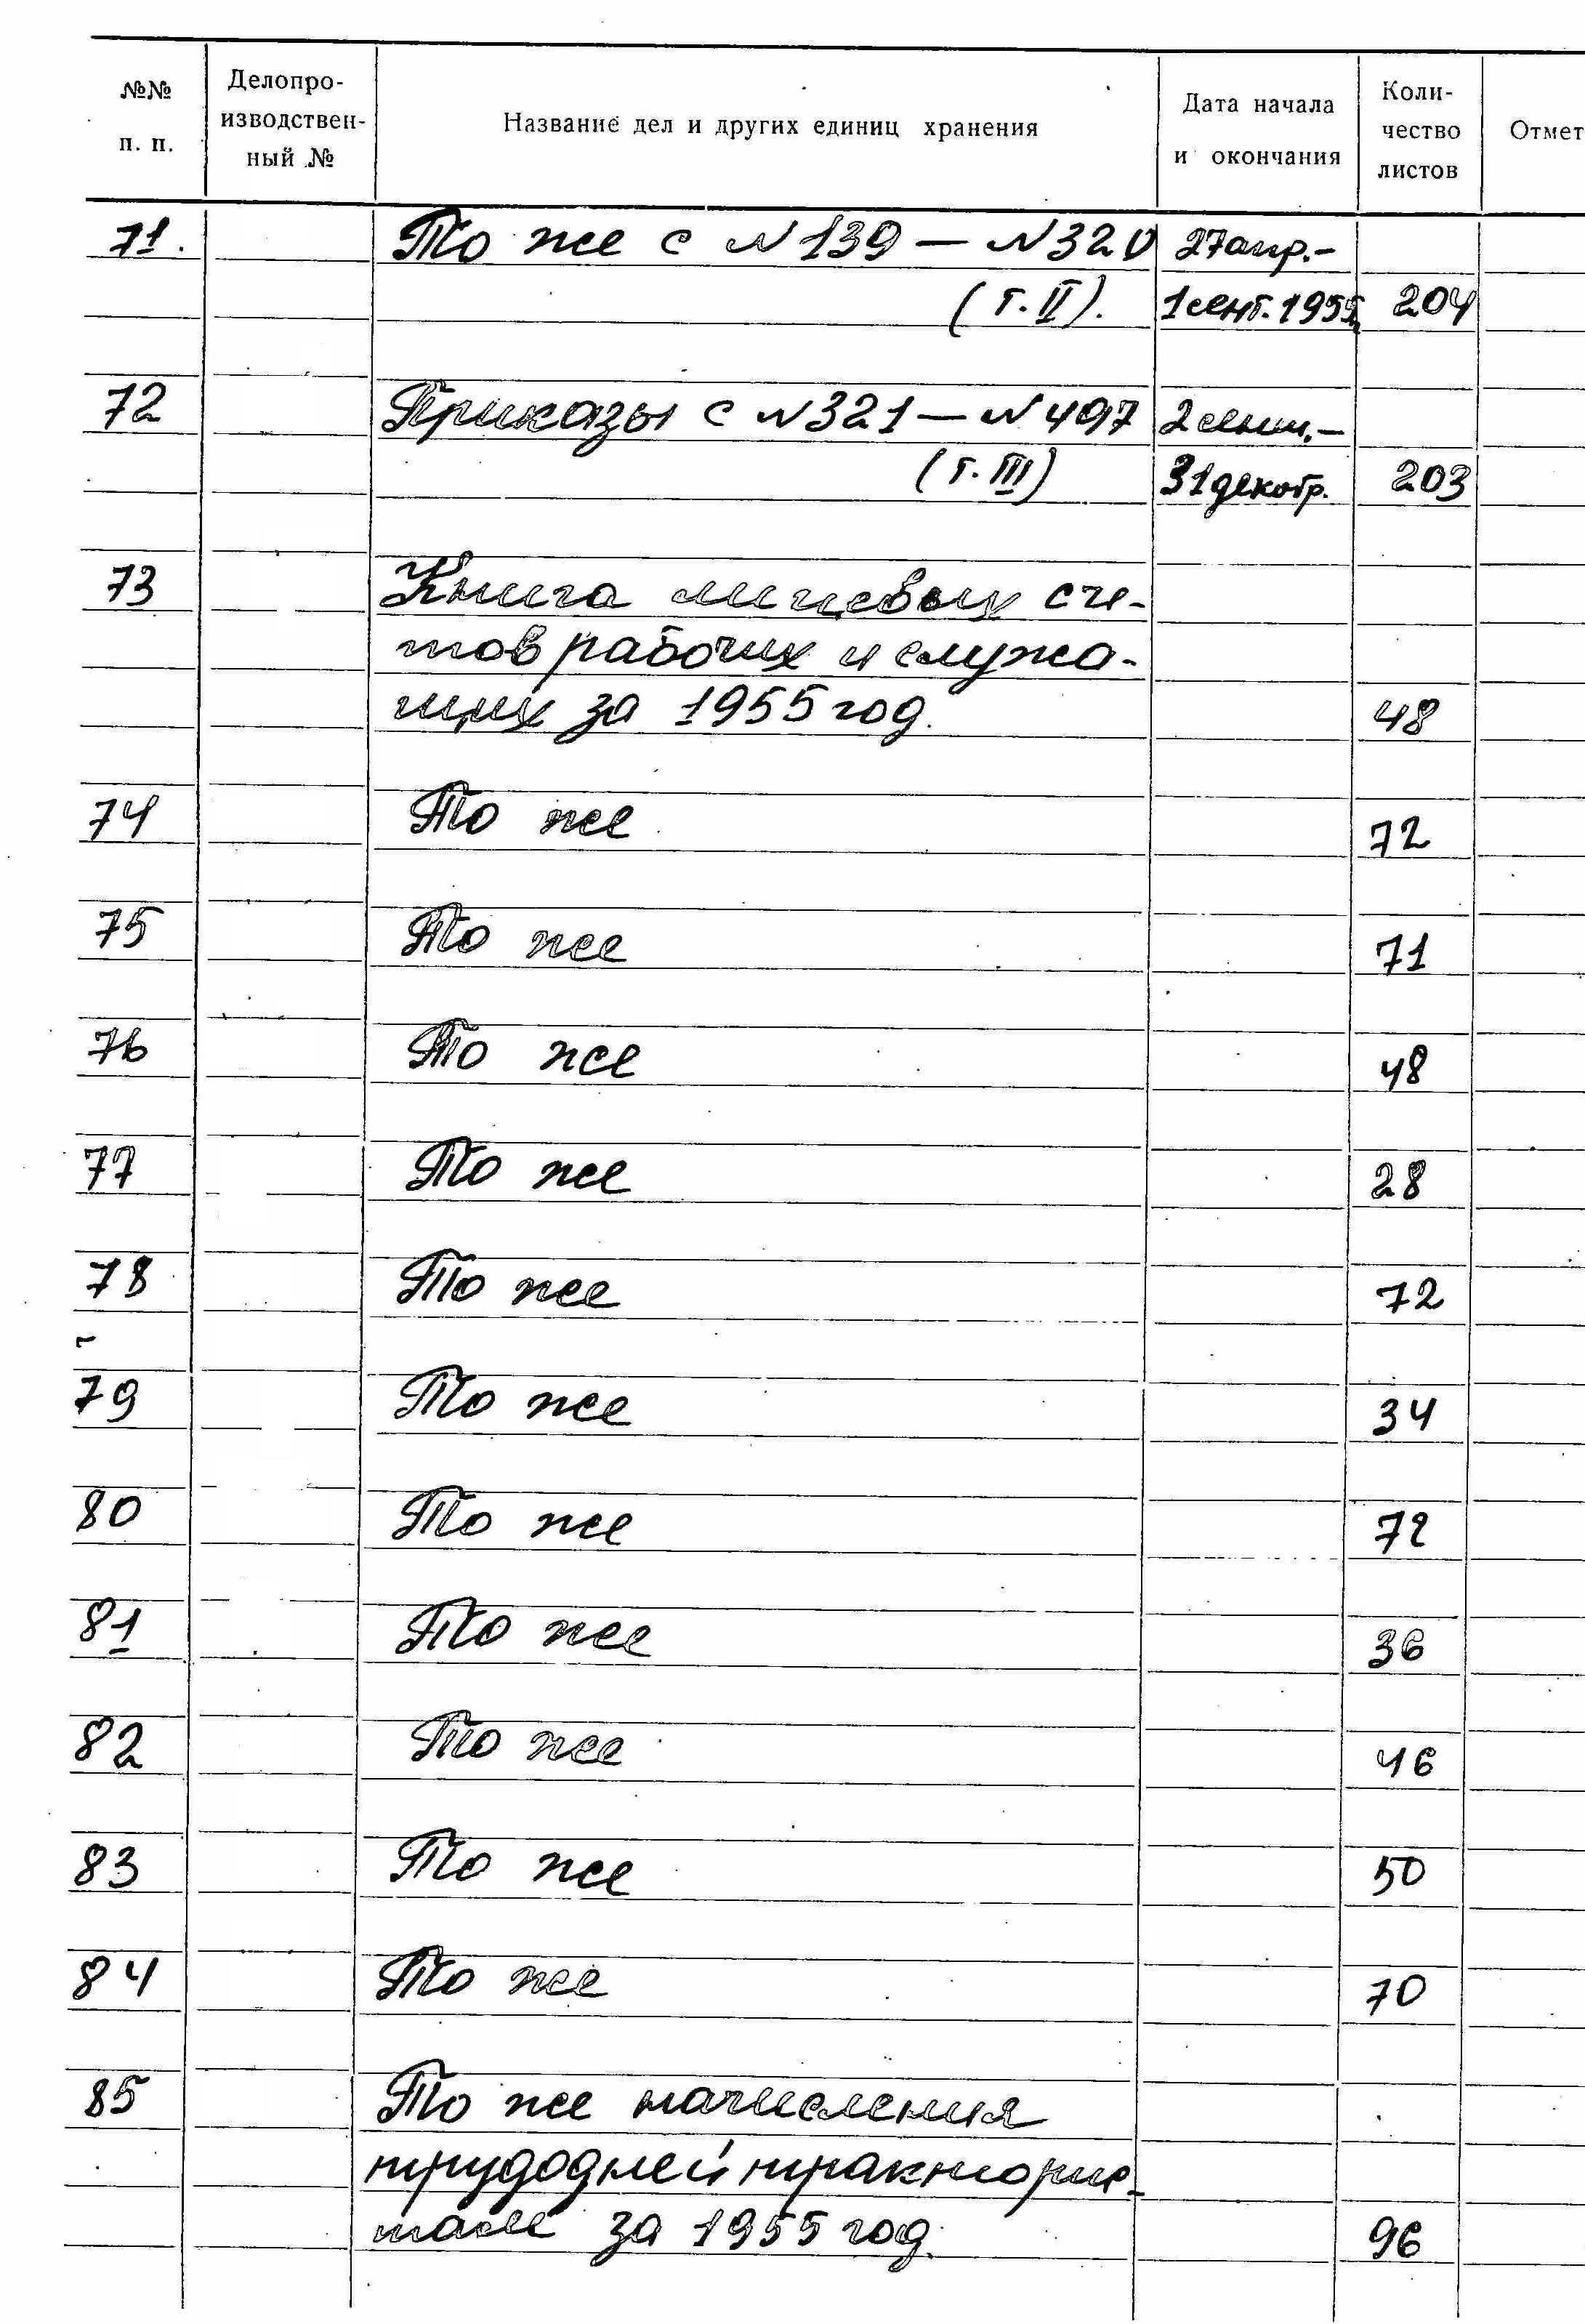 №№ п. п.
Делопро-
изводствен-
ный №
Название дел и других единиц хранения
Дата начала
и окончания
Коли-
чество
листов
Отмет
71. То же с N 139 — N 320 27 апр.-
(т. II). 1 сент. 1955 204
72 Приказы с N 321 — N 497 2 сент.-
(т. III) 31 декабр. 203
73 Книга лицевых сче-
тов рабочих и служа-
щих за 1955 год. 48
74 То же 72
75 То же 71
76 То же 48
77 То же 28
78 То же 72
79 То же 34
80 То же 72
81 То же 36
82 То же 46
83 То же 50
84 То же 70
85 То же начисления
трудодней трактори-
стам за 1955 год. 96